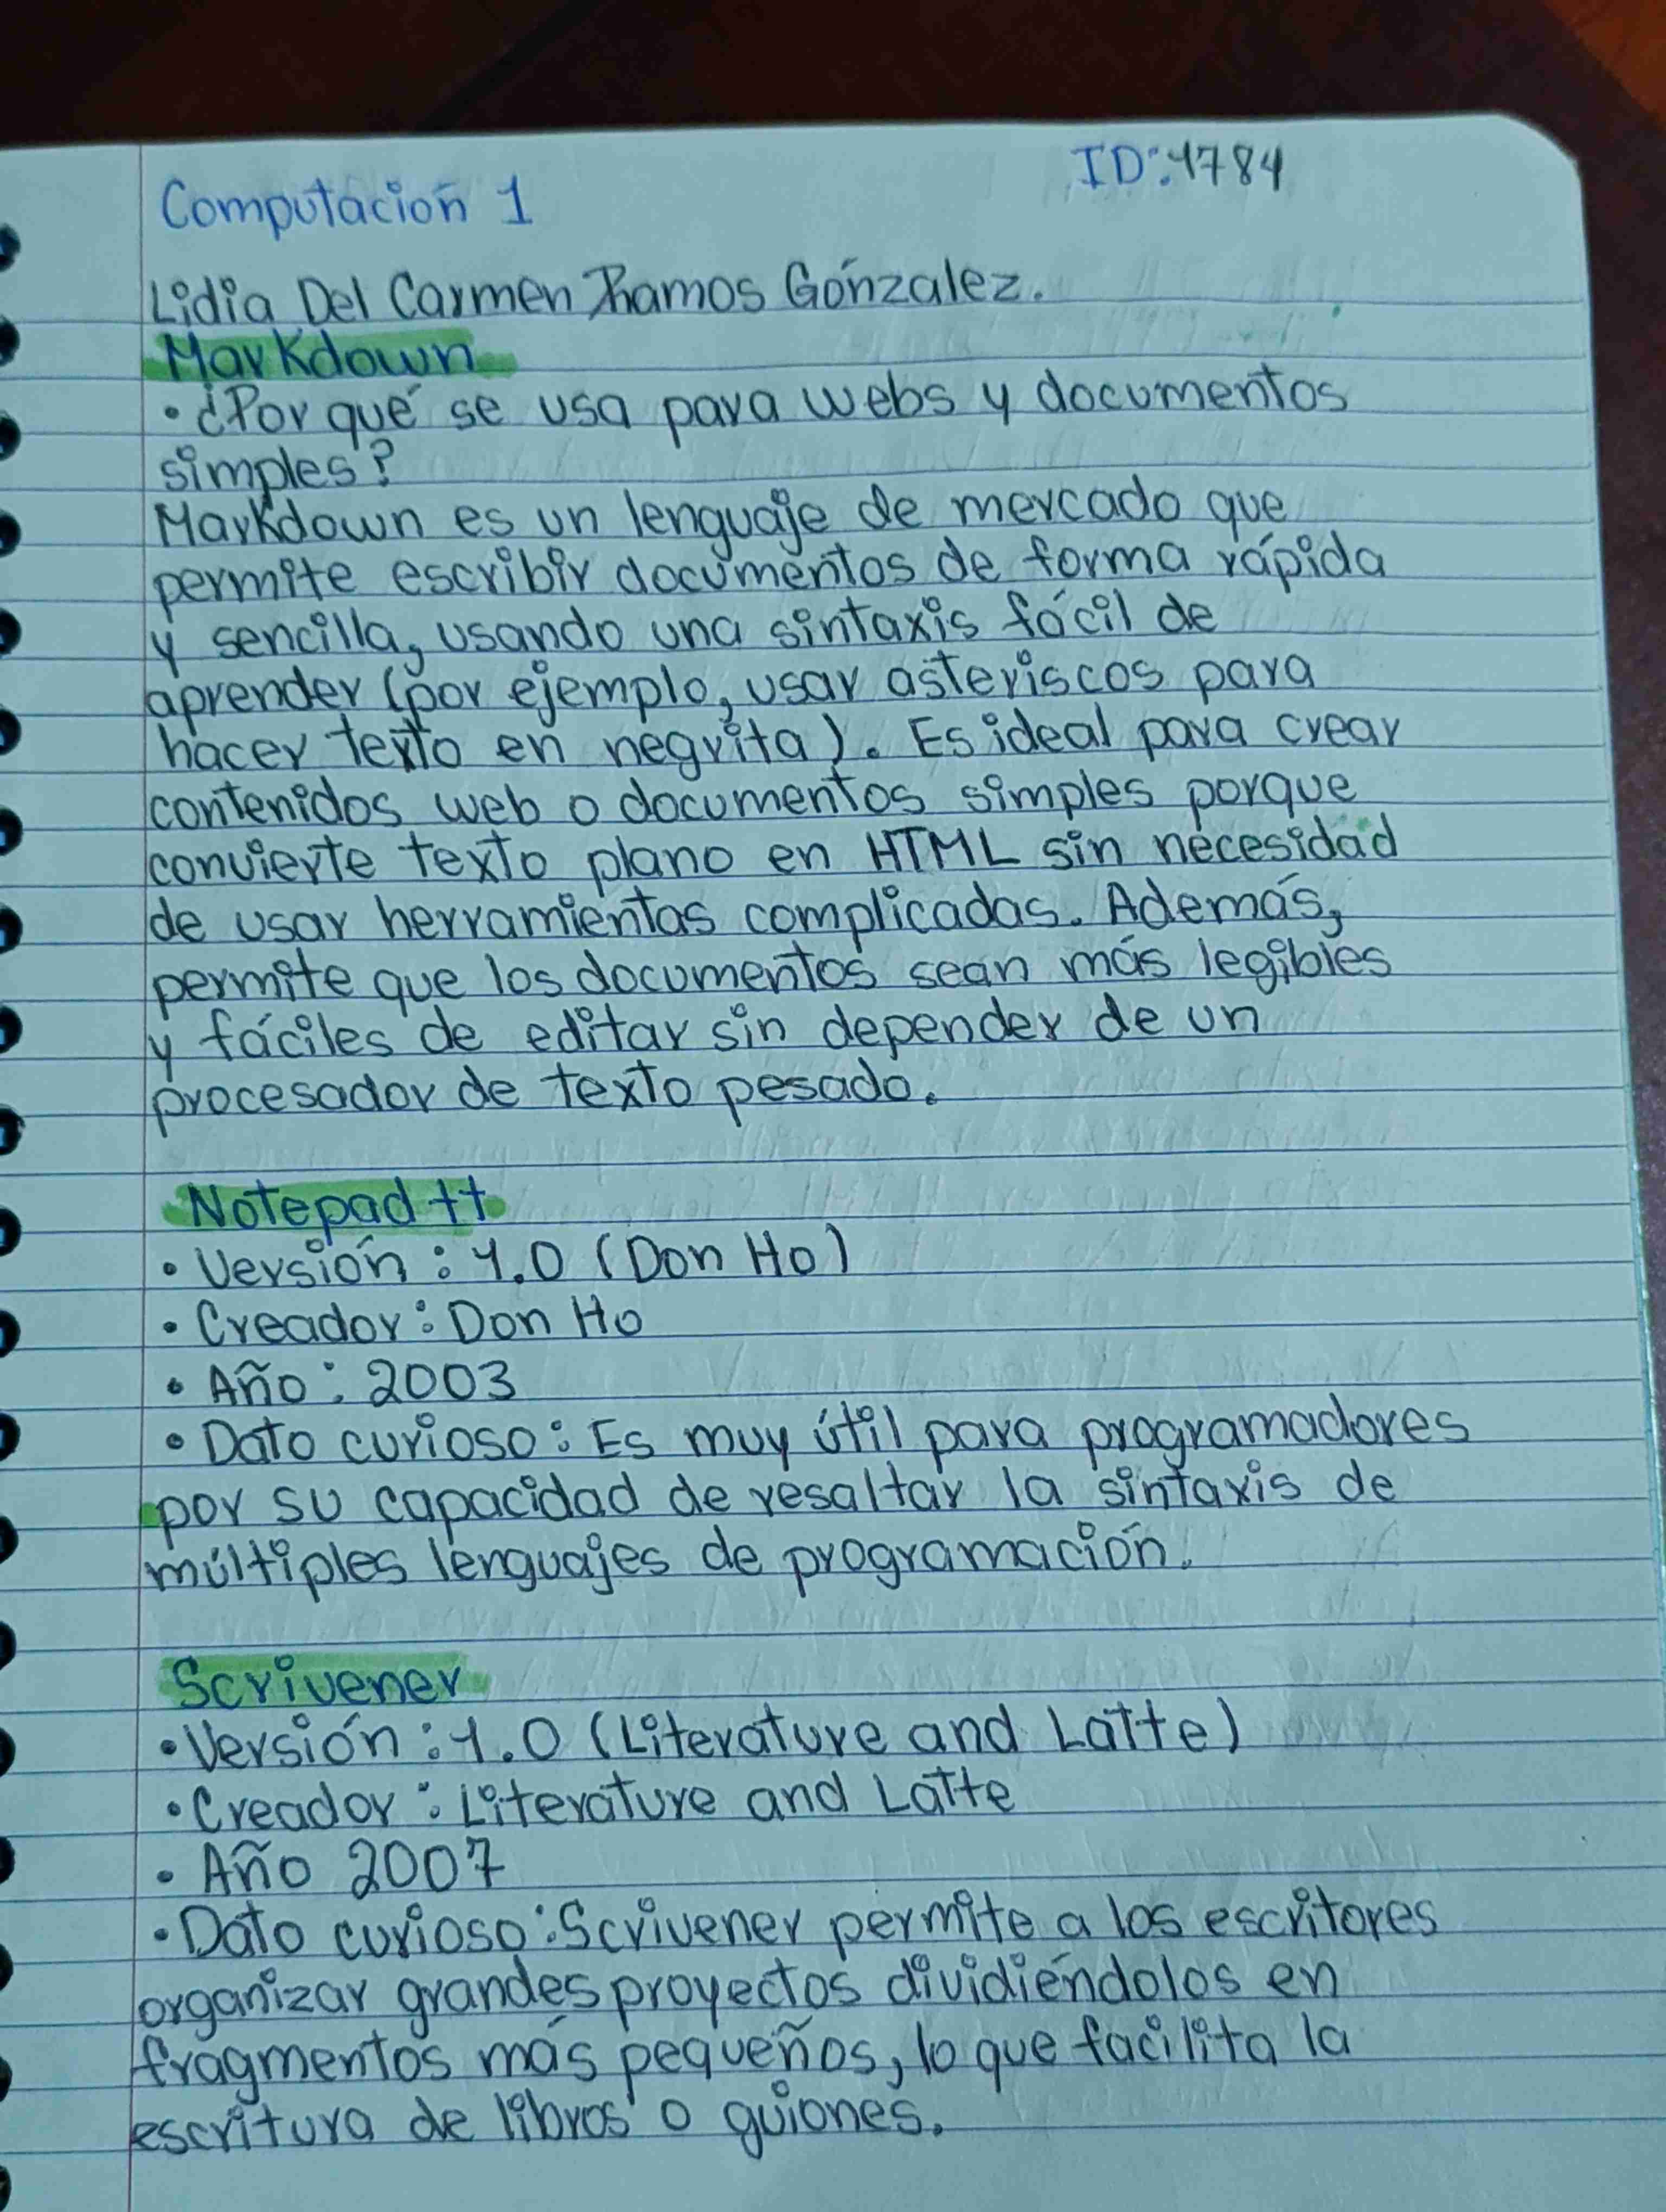 ID: 1784
Computación 1
Lidia Del Carmen Ramos Gónzalez.
Markdown
• ¿Por qué se usa para webs y documentos
simples?
Markdown es un lenguaje de mercado que
permite escribir documentos de forma rápida
y sencilla, usando una sintaxis fácil de
aprender (por ejemplo, usar asteriscos para
hacer texto en negrita). Es ideal para crear
contenidos web o documentos simples porque
convierte texto plano en HTML sin necesidad
de usar herramientas complicadas. Además,
permite que los documentos sean más legibles
y fáciles de editar sin depender de un
procesador de texto pesado.
Notepad ++
• Versión: 1.0 (Don Ho)
• Creador: Don Ho
• Año: 2003
• Dato curioso: Es muy útil para programadores
por su capacidad de resaltar la sintaxis de
múltiples lenguajes de programación.
Scrivener
• Versión: 1.0 (Literature and Latte)
• Creador: Literature and Latte
• Año 2007
• Dato curioso: Scrivener permite a los escritores
organizar grandes proyectos dividiéndolos en
fragmentos más pequeños, lo que facilita la
escritura de libros o guiones.